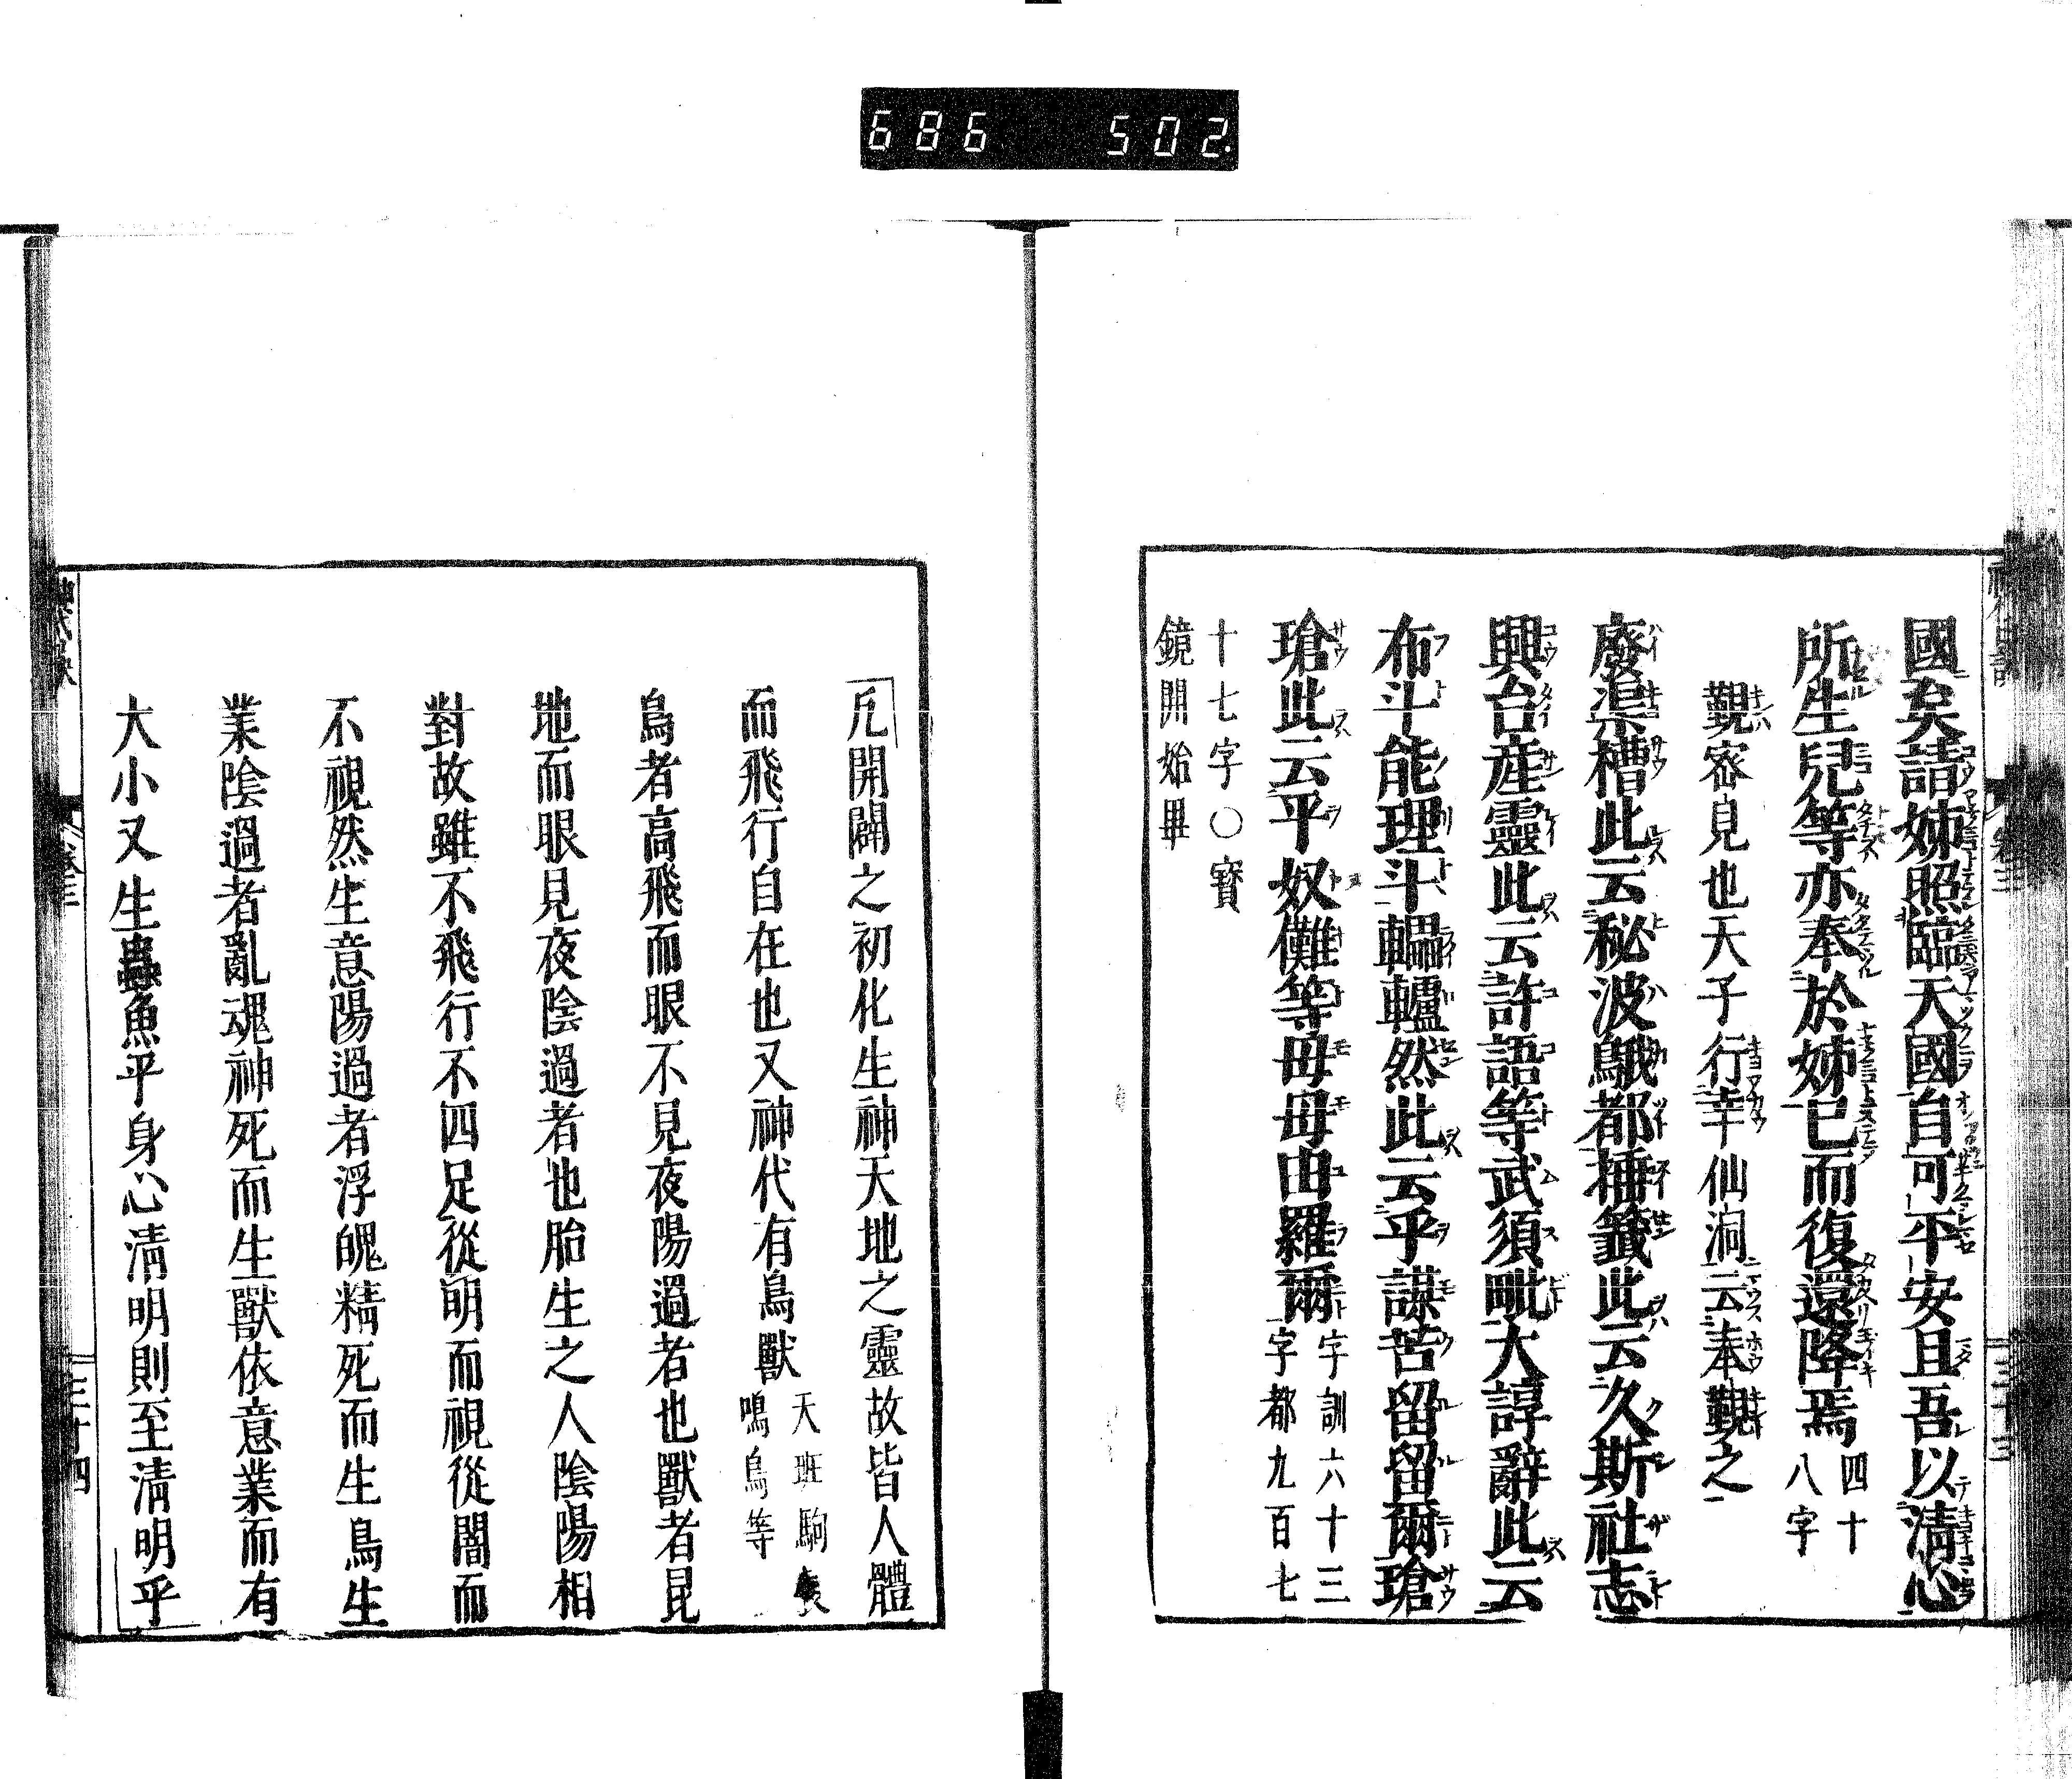 686 502.
國矣請姊照臨天國自可平安且吾以淸心
所生兒等亦奉於姊已而復還降焉四十八字
覲密見也天子行幸仙洞云奉覲之
廢渠槽此云秘波鵝都捶籤此云久斯社志
興台產靈此云許語等武須毗大諄辭此云
布斗能理斗轠轤然此云乎謀苦留留爾瑲
瑲此云乎奴儺等母母由羅爾字訓六十三字都九百七
十七字○寶
鏡開始畢
凡開闢之初化生神天地之靈故皆人體
而飛行自在也又神代有鳥獸天班駒長鳴鳥等
鳥者高飛而眼不見夜陽過者也獸者昆
地而眼見夜陰過者也胎生之人陰陽相
對故雖不飛行不四足從明而視從闇而
不視然生意陽過者浮魄精死而生鳥生
業陰過者亂魂神死而生獸依意業而有
大小又生蟲魚乎身心淸明則至淸明乎
三十四